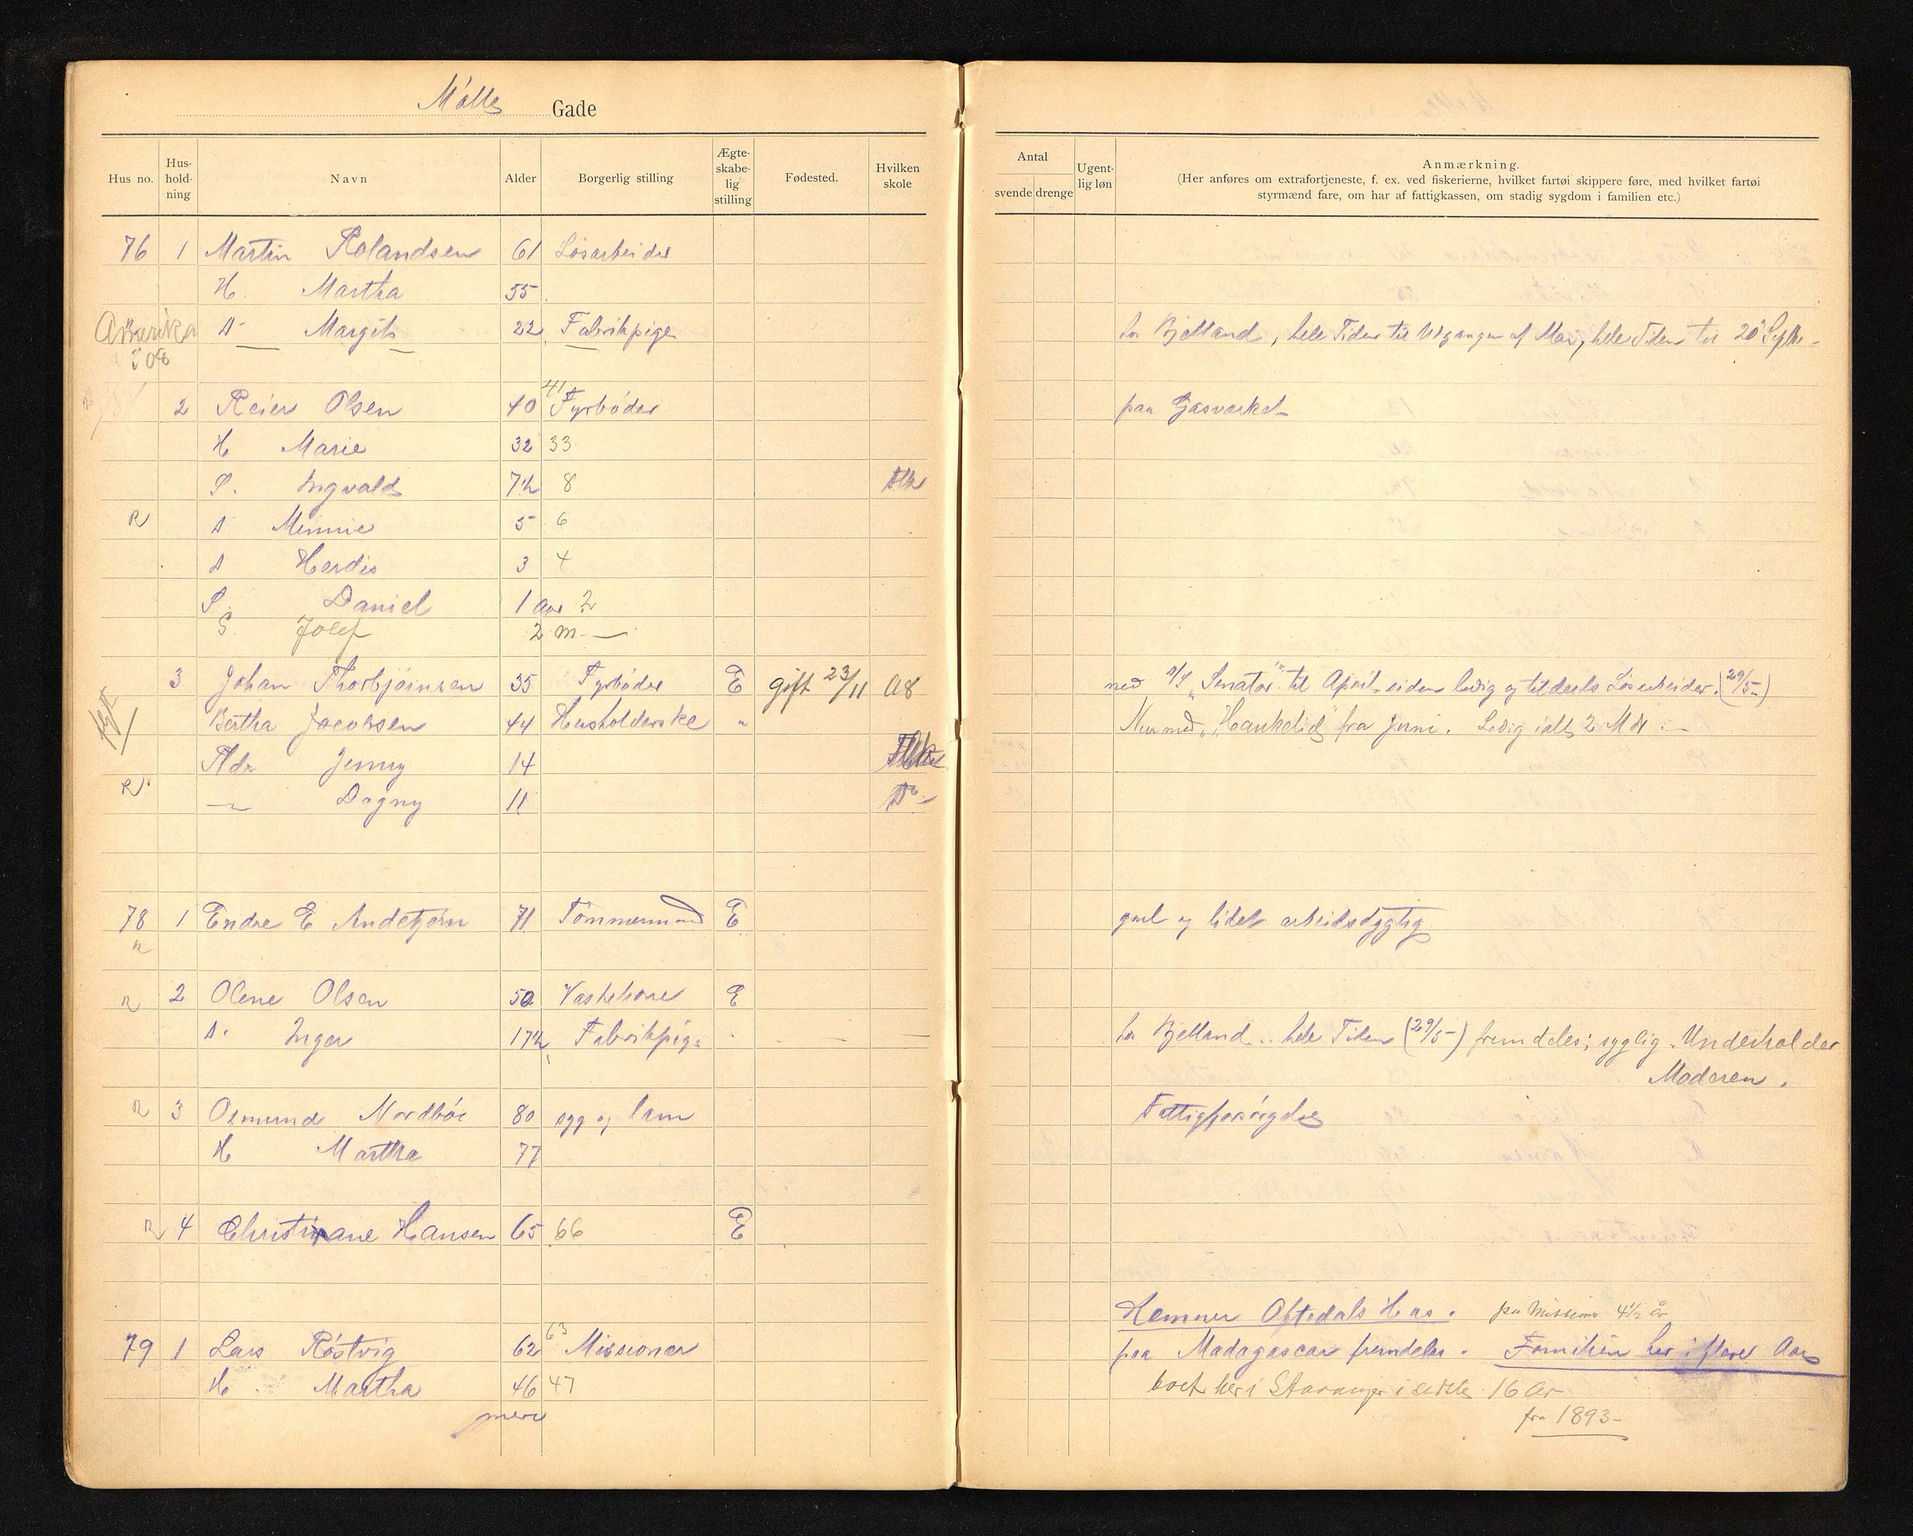 Mølle Gade
Hus no. Hus-hold-ning Navn Alder Borgerlig stilling Ægte-skabe-lig stilling Fødested. Hvilken skole
Antal svende drenge Ugent-lig løn Anmærkning.
(Her anføres om extrafortjeneste, f. ex. ved fiskerierne, hvilket fartøi skippere føre, med hvilket fartøi
styrmænd fare, om har af fattigkassen, om stadig sygdom i familien etc.)
76 1 Martin Rolandsen 61 Løsarbeider
H. Martha 55
Amerika D Margit 22 Fabrikpige hos Bjelland, hele Tiden til Udgangen af Mai, hele Tiden til 20
i 08
2 Reier Olsen 40 41 Fyrbøder paa Gasværket
H Marie 32 33
S. Ingvald 7½ 8
R D Minnie 5 6
D Herdis 3 4
S. Daniel 1 Aar 2
S. Josef 2 m.
3 Johan Thorbjørnsen 35 Fyrbøder E gift 23/11 08 med "Senator" til April siden ledig og tildeels Løsarbeider. (29/5-)
Bertha Jacobsen 44 Husholderske " Nu med "Haukelid" fra Juni. Ledig ialt 2 Mdr.
Jenny 14
R Dagny 11 Do
78 1 Endre E Andebjørn 71 Tømmermand E gml og lidet arbeidsdygtig
R
R 2 Olene Olsen 50 Vaskekone E
D Inger 17½ Fabrikpige hos Bjelland.. hele Tiden (29/5-) fremdeles; syglig. Underholder
Moderen.
R 3 Osmund Nordbøe 80 syg og lam Fattigforsørgelse
H Martha 77
R 4 Christiane Hansen 65 66 E
Hommer Oftedals Hus. paa Missions 4½ år
79 1 Lars Røstvig 62 63 Missionær paa Madagascar fremdeles. Familien her i flere Aar
H. Martha 46 47 boet her i Stavanger i sidste 16 år
mere fra 1893-